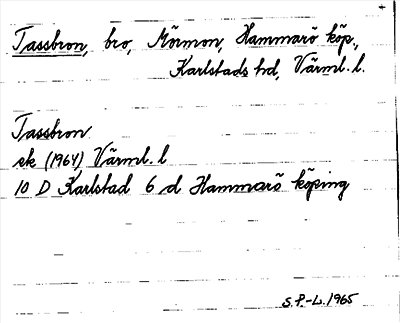 Tassbron, bro, Mörmon, Hammarö köp.,
Karlstads hd, Värml. l.
Tassbron
ek (1964) Värml. l
10 D Karlstad 6 d Hammarö köping
S.P.-L. 1965